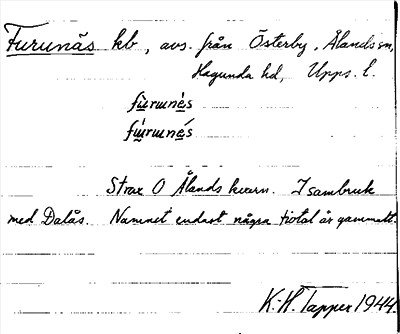 Furunäs kb, avs. från Österby, Ålands sn,
Hagunda hd, Upps. l.
Strax O Ålands kvarn. I sambruk
med Dalås. Namnet endast några tiotal år gammalt.
K.-H. Tapper 1944.